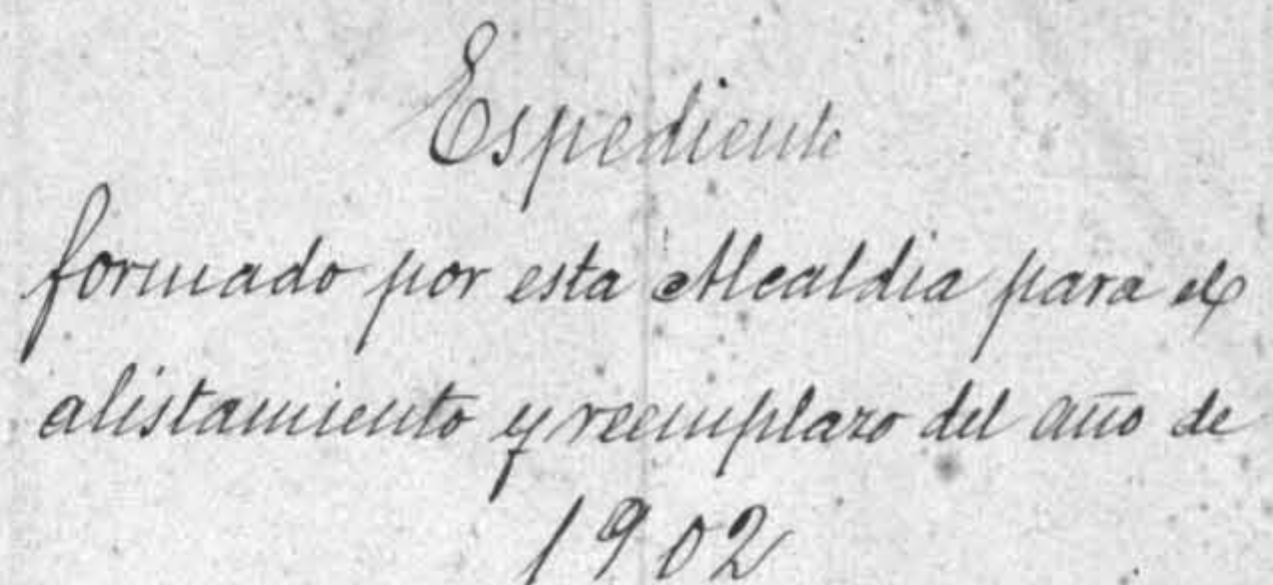 Espediente
formado por esta Alcaldia para el
alistamiento y reemplazo del año de
1902